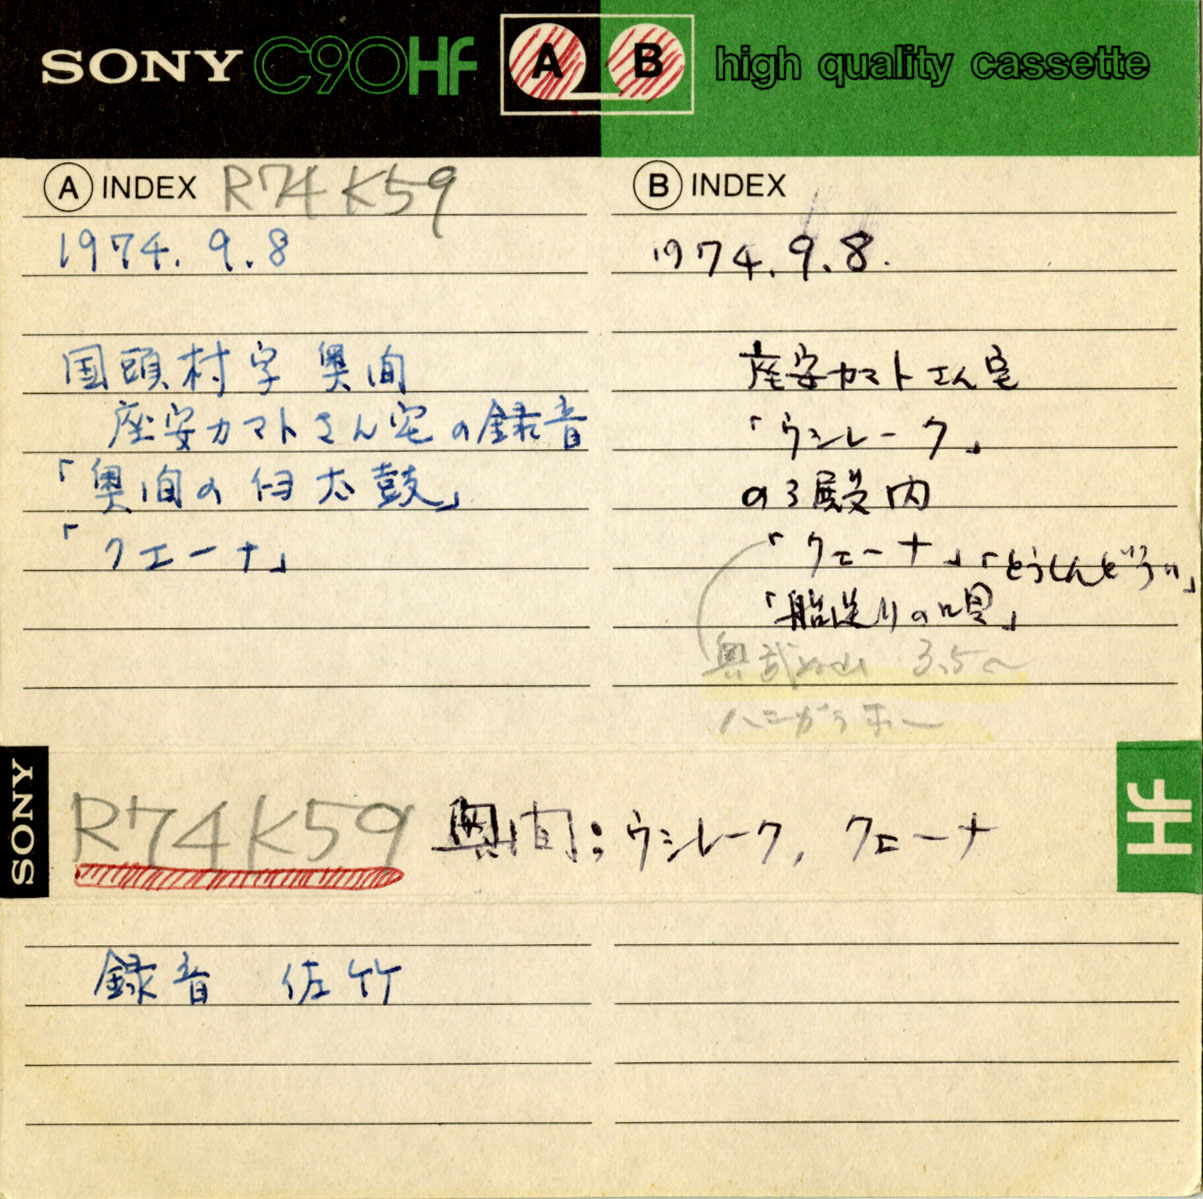 SONY C90HF A B high quality cassette
A INDEX R74K59
1974.9.8
国頭村字 奥間
座安カマトさん宅の録音
「奥間の 太鼓」
「クエーナ」
B INDEX
1974.9.8.
座安カマトさん宅
「ウシレーク」
のろ殿内
「クェーナ」「とうしんどうい」
「船送りの唄」
奥武 3.5〜
SONY R74K59 奥間：ウシレーク, クエーナ HF
録音 佐竹